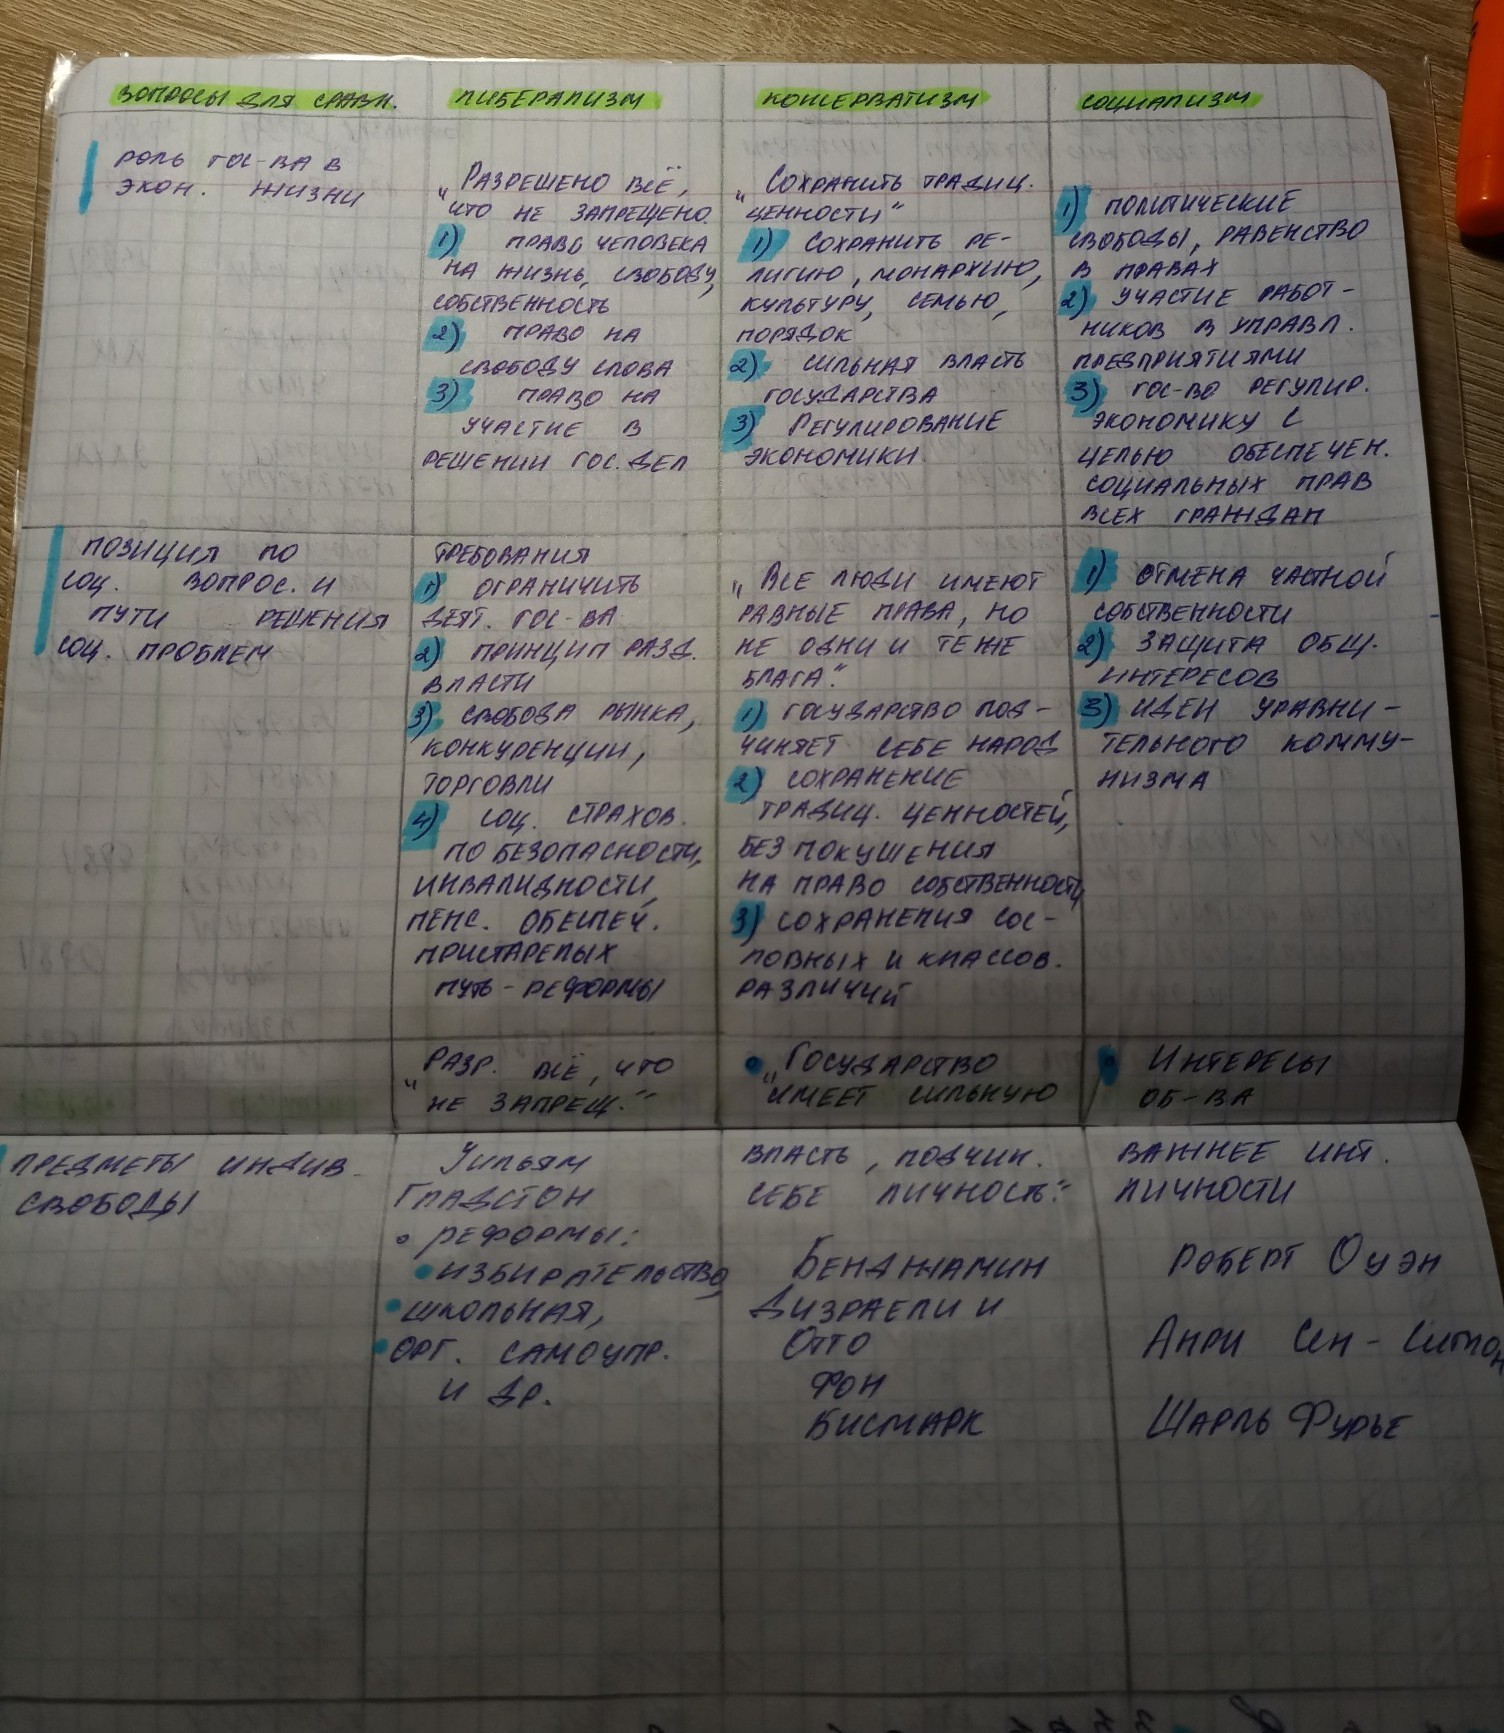 ВОПРОСЫ ДЛЯ СРАВН.
ЛИБЕРАЛИЗМ
КОНСЕРВАТИЗМ
СОЦИАЛИЗМ
РОЛЬ ГОС-ВА В
ЭКОН. ЖИЗНИ
„РАЗРЕШЕНО ВСЁ,
ЧТО НЕ ЗАПРЕЩЕНО.
1) ПРАВО ЧЕЛОВЕКА
НА ЖИЗНЬ, СВОБОДУ,
СОБСТВЕННОСТЬ
2) ПРАВО НА
СВОБОДУ СЛОВА
3) ПРАВО НА
УЧАСТИЕ В
РЕШЕНИИ ГОС. ДЕЛ
„СОХРАНИТЬ ТРАДИЦ.
ЦЕННОСТИ“
1) СОХРАНИТЬ РЕ-
ЛИГИЮ, МОНАРХИЮ,
КУЛЬТУРУ, СЕМЬЮ,
ПОРЯДОК
2) СИЛЬНАЯ ВЛАСТЬ
ГОСУДАРСТВА
3) РЕГУЛИРОВАНИЕ
ЭКОНОМИКИ
1) ПОЛИТИЧЕСКИЕ
СВОБОДЫ, РАВЕНСТВО
В ПРАВАХ
2) УЧАСТИЕ РАБОТ-
НИКОВ В УПРАВЛ.
ПРЕДПРИЯТИЯМИ
3) ГОС-ВО РЕГУЛИР.
ЭКОНОМИКУ С
ЦЕЛЬЮ ОБЕСПЕЧЕН.
СОЦИАЛЬНЫХ ПРАВ
ВСЕХ ГРАЖДАН
ПОЗИЦИЯ ПО
СОЦ. ВОПРОС. И
ПУТИ РЕШЕНИЯ
СОЦ. ПРОБЛЕМ
ТРЕБОВАНИЯ
1) ОГРАНИЧИТЬ
ДЕЯТ. ГОС-ВА
2) ПРИНЦИП РАЗД.
ВЛАСТИ
3) СВОБОДА РЫНКА,
КОНКУРЕНЦИИ,
ТОРГОВЛИ
4) СОЦ. СТРАХОВ.
ПО БЕЗОПАСНОСТИ,
ИНВАЛИДНОСТИ,
ПЕНС. ОБЕСПЕЧ.
ПРИСТАРЕЛЫХ
ПУТЬ - РЕФОРМЫ
„ВСЕ ЛЮДИ ИМЕЮТ
РАВНЫЕ ПРАВА, НО
НЕ ОДНИ И ТЕ ЖЕ
БЛАГА.“
1) ГОСУДАРСТВО ПОД-
ЧИНЯЕТ СЕБЕ НАРОД
2) СОХРАНЕНИЕ
ТРАДИЦ. ЦЕННОСТЕЙ,
БЕЗ ПОКУШЕНИЯ
НА ПРАВО СОБСТВЕННОСТИ
3) СОХРАНЕНИЯ СОС-
ЛОВНЫХ И КЛАССОВ.
РАЗЛИЧИЙ
1) ОТМЕНА ЧАСТНОЙ
СОБСТВЕННОСТИ
2) ЗАЩИТА ОБЩ.
ИНТЕРЕСОВ
3) ИДЕИ УРАВНИ-
ТЕЛЬНОГО КОММУ-
НИЗМА
ПРЕДМЕТЫ ИНДИВ.
СВОБОДЫ
„РАЗР. ВСЁ, ЧТО
НЕ ЗАПРЕЩ.“
УИЛЬЯМ
ГЛАДСТОН
• РЕФОРМЫ:
• ИЗБИРАТЕЛЬСТВО,
• ШКОЛЬНАЯ,
• ОРГ. САМОУПР.
И ДР.
• „ГОСУДАРСТВО
ИМЕЕТ СИЛЬНУЮ
ВЛАСТЬ, ПОДЧИН.
СЕБЕ ЛИЧНОСТЬ.“
БЕНДЖАМИН
ДИЗРАЕЛИ И
ОТТО
ФОН
БИСМАРК
• ИНТЕРЕСЫ
ОБ-ВА
ВАЖНЕЕ ИНТ.
ЛИЧНОСТИ
РОБЕРТ ОУЭН
АНРИ СЕН-СИМОН
ШАРЛЬ ФУРЬЕ